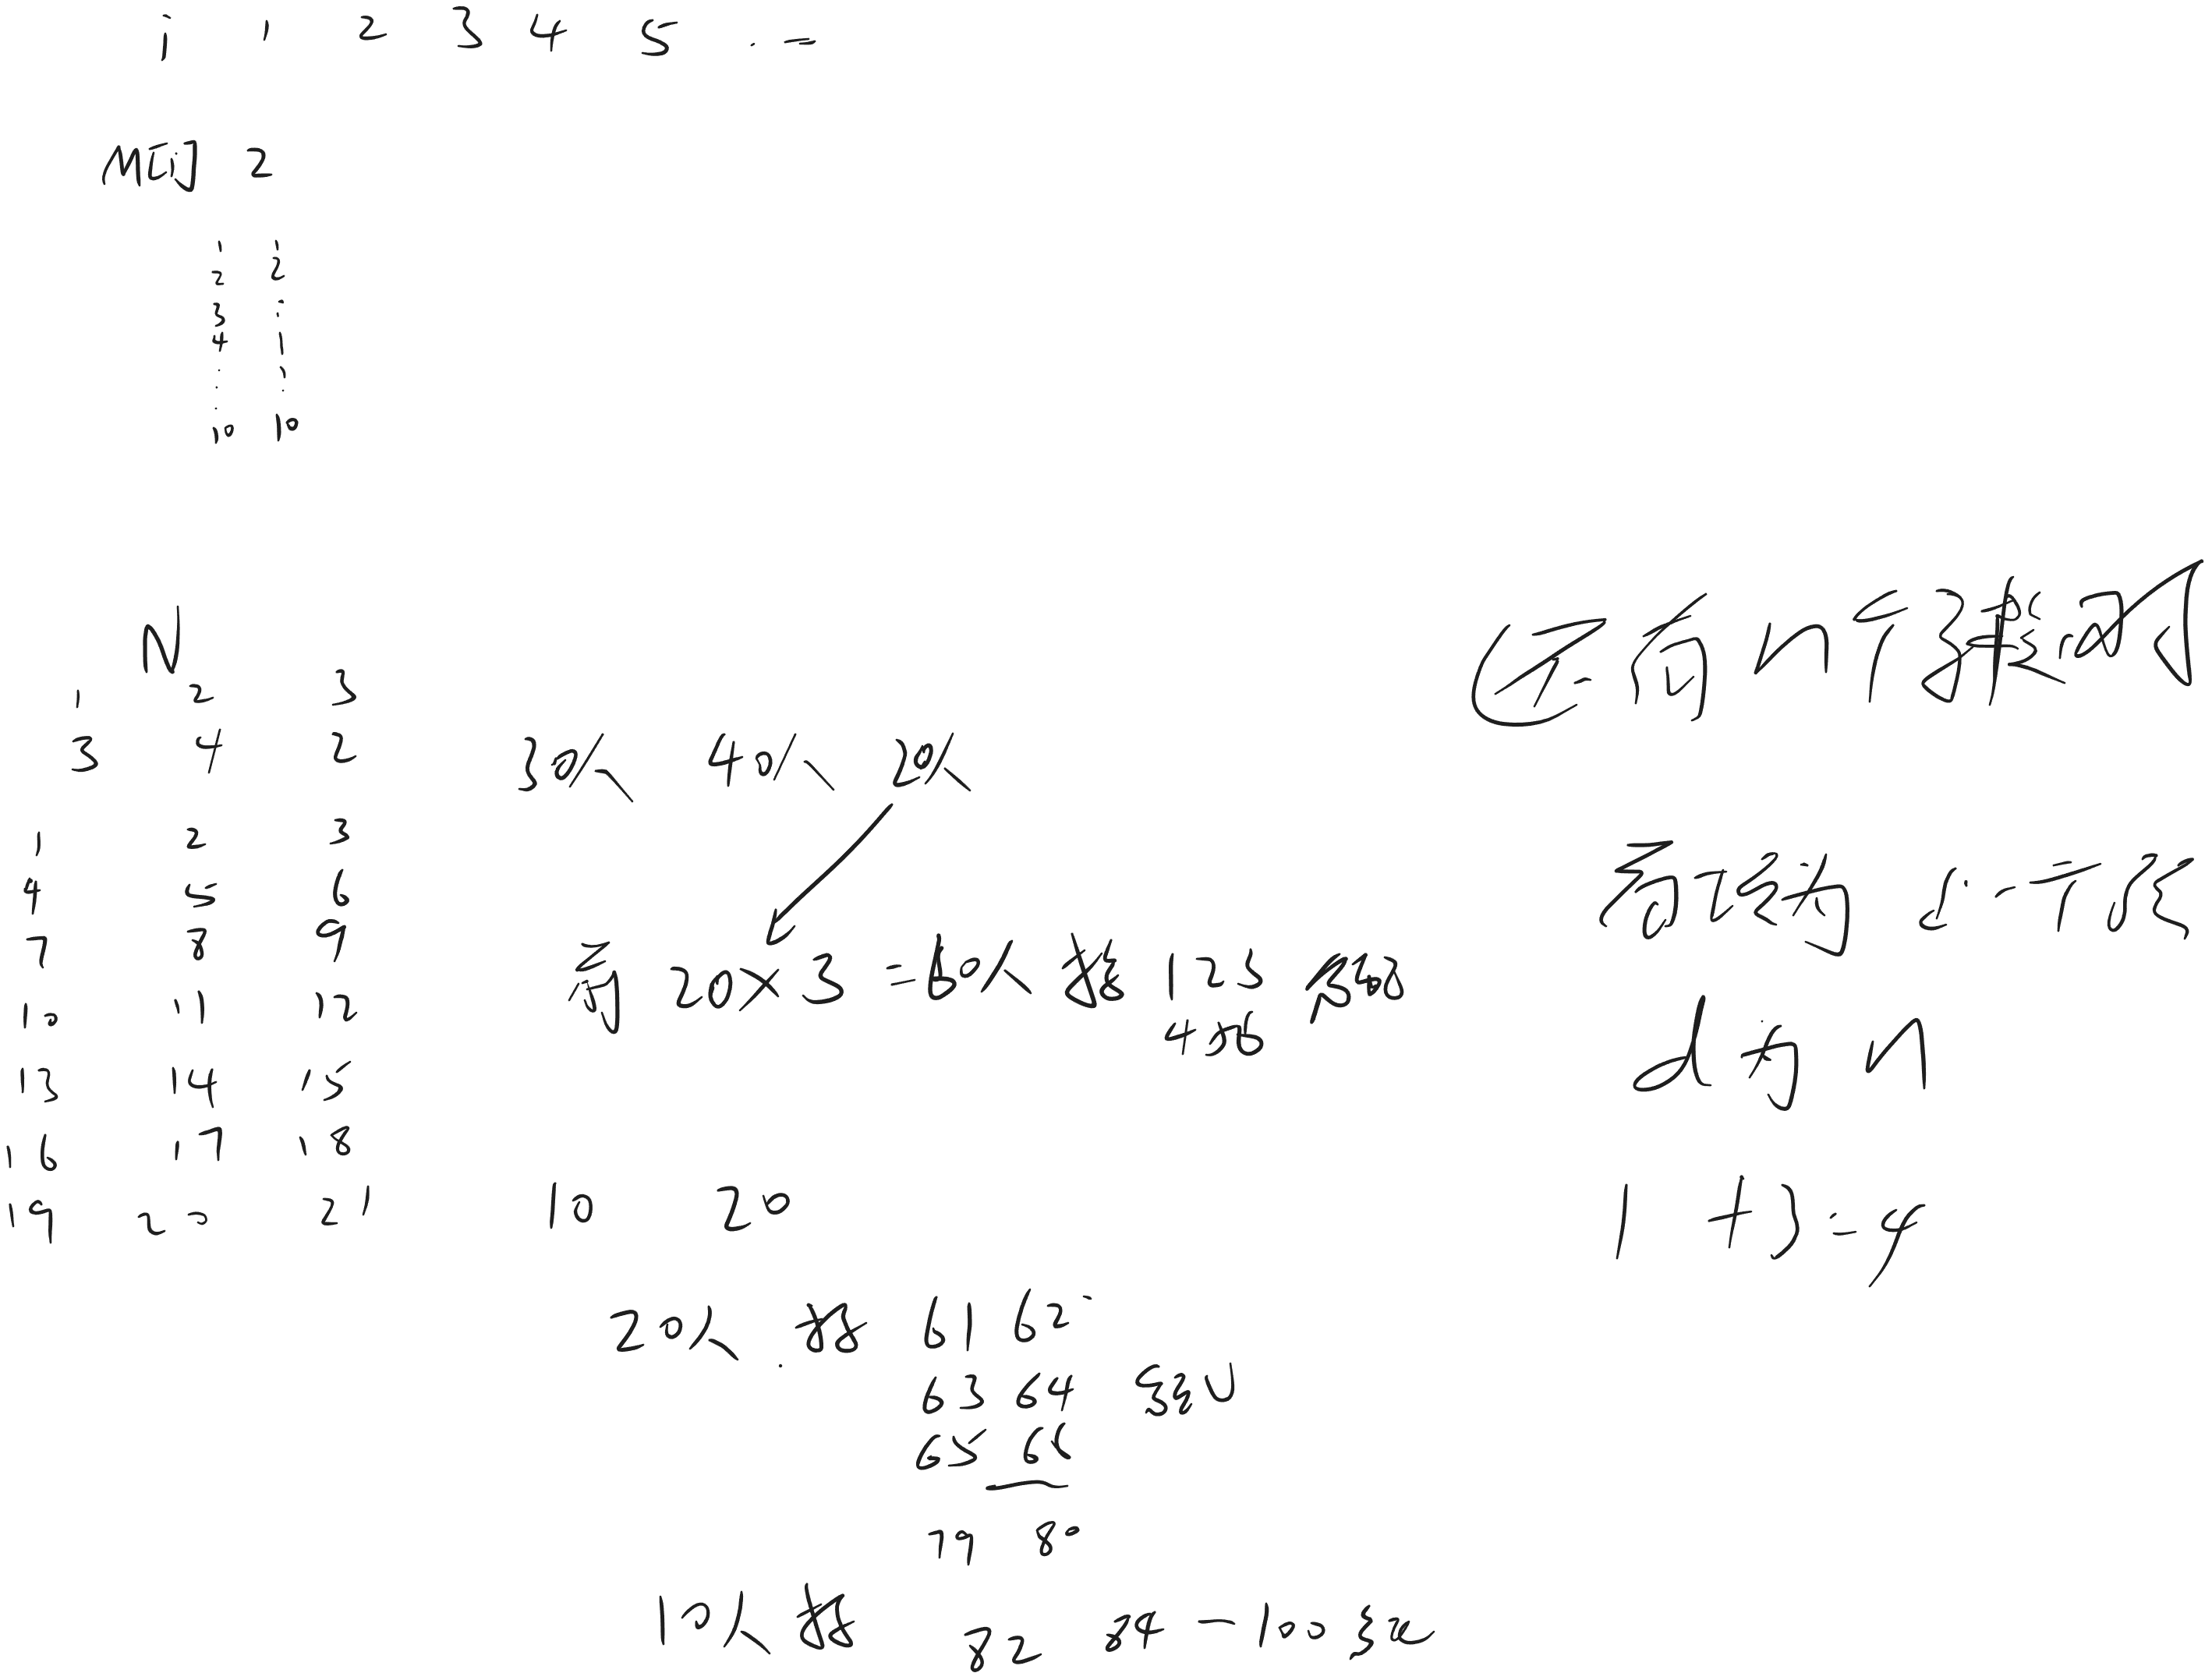 i 1 2 3 4 5 . -
M[i] 2
1 1
2 2
3 :
4 |
. .
. .
10 10
N
1 2 3
3 4 2 30人 40人 20人
1 2 3
4 5 6
7 8 9
10 11 12
13 14 15
16 17 18
19 20 21
还有 n 个
20×3=60人 接 123
456
为 i-1个
d 为 n
1+3=4
10 20
20人 接 61 62
63 64
65 66
79 80
10人 接 82 84 - 100